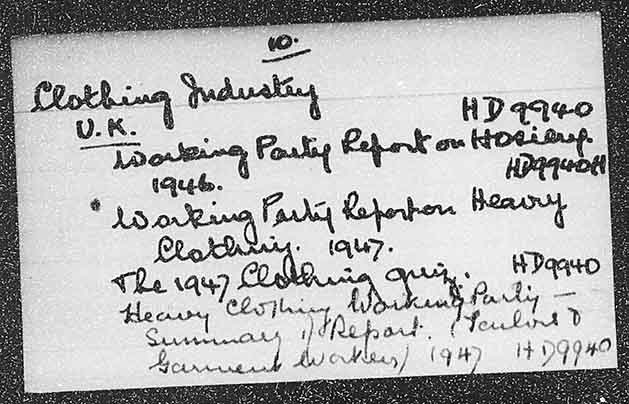 10.
Clothing Industry
U.K. HD9940
Working Party Report on Hosiery.
1946. HD9940H
• Working Party Report on Heavy
Clothing. 1947.
The 1947 Clothing quiz. HD9940
Heavy Clothing Working Party –
Summary of Report. (Tailors &
Garment Workers) 1947 HD9940